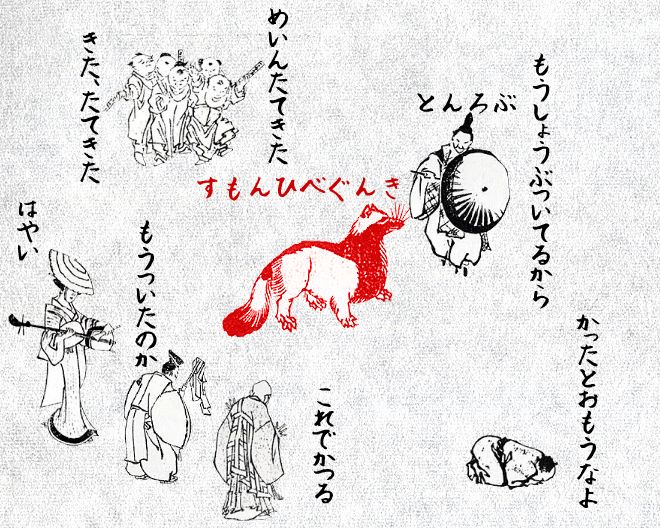 めいんたてきた
きた、たてきた
はやい
もうついたのか
これでかつる
きんぐべひんもす
ぶろんと
もうしょうぶついてるから
かったとおもうなよ